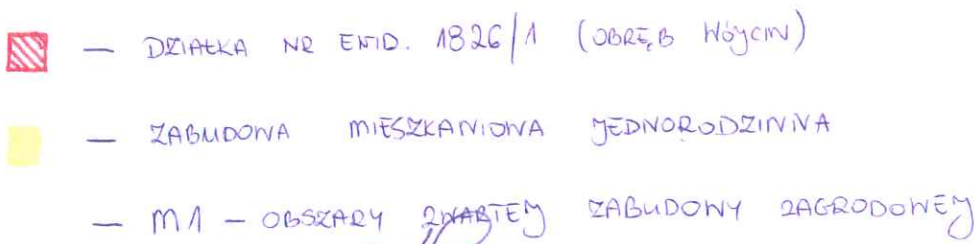 — DZIAŁKA NR EWID. 1826/1 (OBRĘB WÓJCIN)
— ZABUDOWA MIESZKANIOWA JEDNORODZINNA
— M1 – OBSZARY ZWARTEJ ZABUDOWY ZAGRODOWEJ